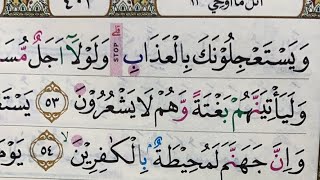 اتل ما اوحي ٢١
٤٠٢
وَيَسْتَعْجِلُوْنَكَ بِالْعَذَابِ STOP وَلَوْلَآ اَجَلٌ مُّسَ
وَلَيَأْتِيَنَّهُمْ بَغْتَةً وَّهُمْ لَا يَشْعُرُوْنَ ٥٣ يَسْتَ
وَاِنَّ جَهَنَّمَ لَمُحِيْطَةٌۢ بِالْكٰفِرِيْنَ ٥٤ يَوْمَ